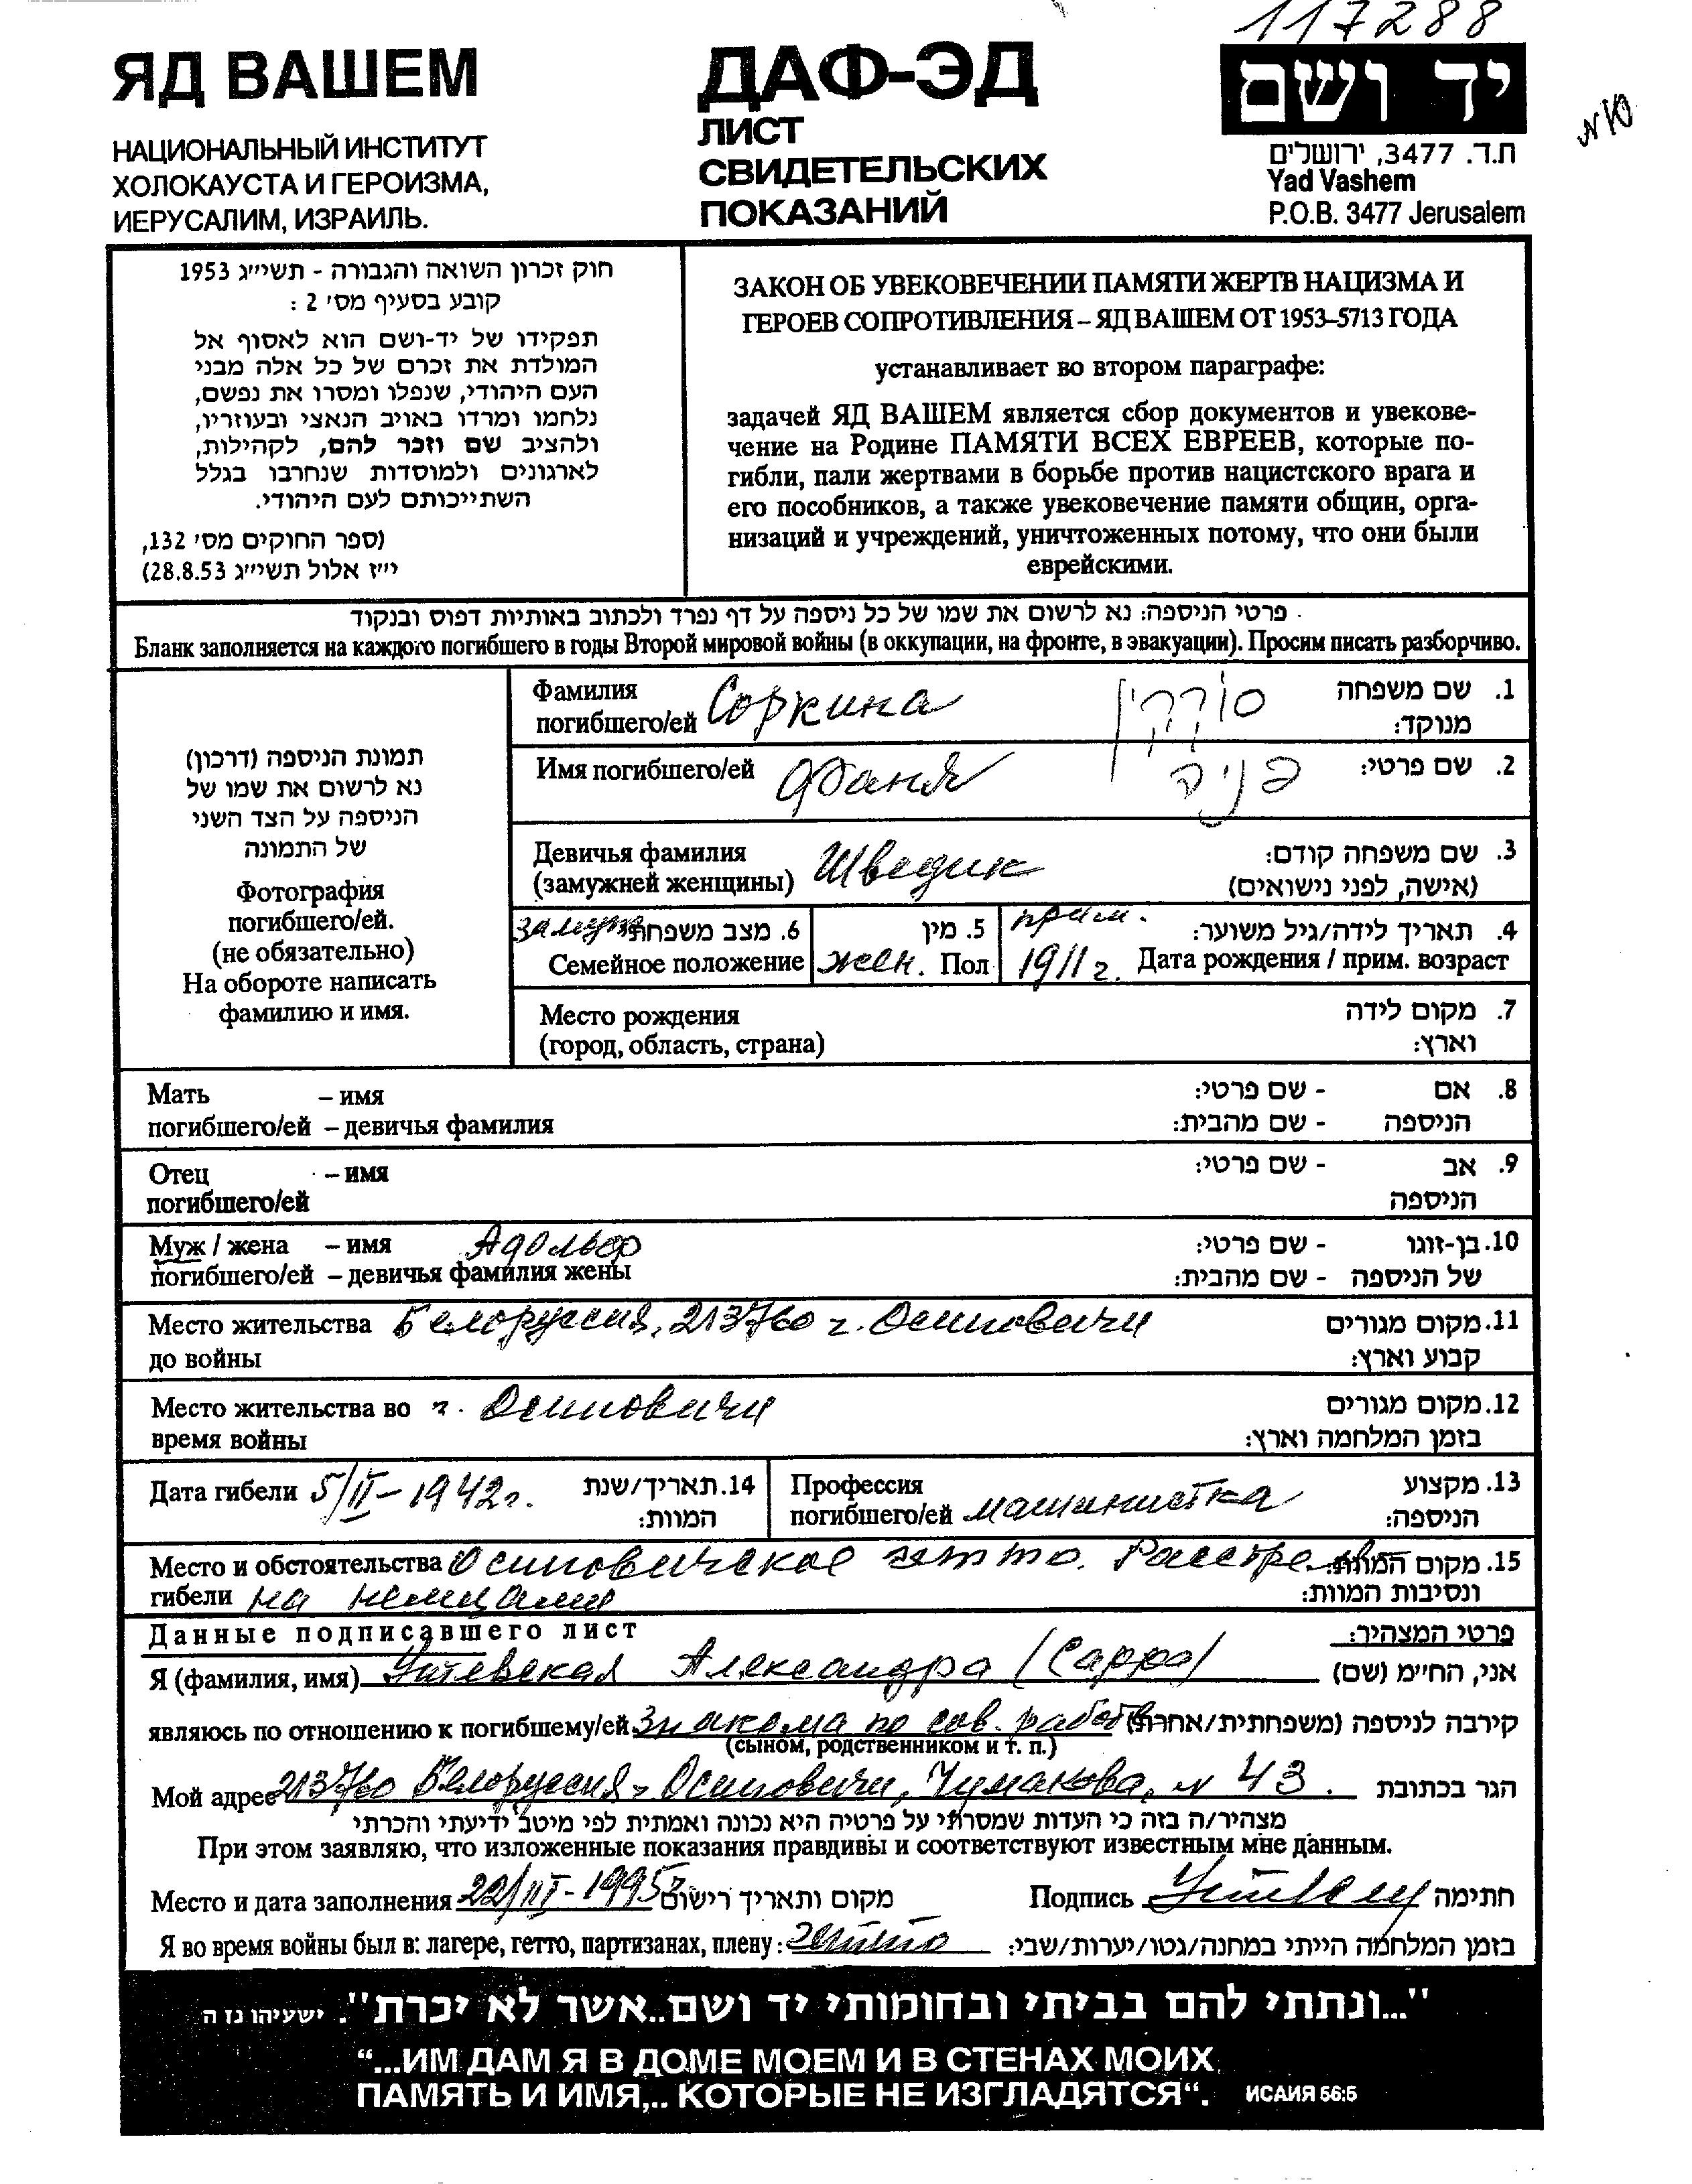 117288
ЯД ВАШЕМ
НАЦИОНАЛЬНЫЙ ИНСТИТУТ
ХОЛОКАУСТА И ГЕРОИЗМА,
ИЕРУСАЛИМ, ИЗРАИЛЬ.
ДАФ-ЭД
ЛИСТ
СВИДЕТЕЛЬСКИХ
ПОКАЗАНИЙ
יד ושם
ת.ד. 3477, ירושלים
Yad Vashem
P.O.B. 3477 Jerusalem
חוק זכרון השואה והגבורה - תשי״ג 1953
קובע בסעיף מס׳ 2 :
תפקידו של יד-ושם הוא לאסוף אל
המולדת את זכרם של כל אלה מבני
העם היהודי, שנפלו ומסרו את נפשם,
נלחמו ומרדו באויב הנאצי ובעוזריו,
ולהציב שם וזכר להם, לקהילות,
לארגונים ולמוסדות שנחרבו בגלל
השתייכותם לעם היהודי.
(ספר החוקים מס׳ 132,
י״ז אלול תשי״ג 28.8.53)
ЗАКОН ОБ УВЕКОВЕЧЕНИИ ПАМЯТИ ЖЕРТВ НАЦИЗМА И
ГЕРОЕВ СОПРОТИВЛЕНИЯ – ЯД ВАШЕМ ОТ 1953–5713 ГОДА
устанавливает во втором параграфе:
задачей ЯД ВАШЕМ является сбор документов и увекове-
чение на Родине ПАМЯТИ ВСЕХ ЕВРЕЕВ, которые по-
гибли, пали жертвами в борьбе против нацистского врага и
его пособников, а также увековечение памяти общин, орга-
низаций и учреждений, уничтоженных потому, что они были
еврейскими.
פרטי הניספה: נא לרשום את שמו של כל ניספה על דף נפרד ולכתוב באותיות דפוס ובנקוד
Бланк заполняется на каждого погибшего в годы Второй мировой войны (в оккупации, на фронте, в эвакуации). Просим писать разборчиво.
תמונת הניספה (דרכון)
נא לרשום את שמו של
הניספה על הצד השני
של התמונה
Фотография
погибшего/ей.
(не обязательно)
На обороте написать
фамилию и имя.
Фамилия погибшего/ей Соркина סורקין 1. שם משפחה
מנוקד:
Имя погибшего/ей Фаня פניה 2. שם פרטי:
Девичья фамилия Шведик 3. שם משפחה קודם:
(замужней женщины) (אישה, לפני נישואים)
замужем 6. מצב משפחתי 5. מין прим. 4. תאריך לידה/גיל משוער:
Семейное положение жен. Пол 1911 г. Дата рождения / прим. возраст
Место рождения 7. מקום לידה
(город, область, страна) וארץ:
Мать – имя 8. אם - שם פרטי:
погибшего/ей – девичья фамилия הניספה - שם מהבית:
Отец – имя 9. אב - שם פרטי:
погибшего/ей הניספה
Муж / жена – имя Адольф 10. בן-זוגו - שם פרטי:
погибшего/ей – девичья фамилия жены של הניספה - שם מהבית:
Место жительства Белоруссия, 213760 г. Осиповичи 11. מקום מגורים
до войны קבוע וארץ:
Место жительства во г. Осиповичи 12. מקום מגורים
время войны בזמן המלחמה וארץ:
Дата гибели 5/II–1942г. 14. תאריך/שנת
המוות:
Профессия 13. מקצוע
погибшего/ей машинистка הניספה:
Место и обстоятельства Осиповичское гетто. Расстреле- 15. מקום המוות
гибели на немцами ונסיבות המוות:
Данные подписавшего лист פרטי המצהיר:
Я (фамилия, имя) Утевская Александра (Сарра) אני, החי״מ (שם)
являюсь по отношению к погибшему/ей Знакома по сов. работе קירבה לניספה (משפחתית/אחרת)
(сыном, родственником и т. п.)
Мой адрес 213760 Белоруссия, Осиповичи, Чумакова, N 43. הגר בכתובת
מצהיר/ה בזה כי העדות שמסרתי על פרטיה היא נכונה ואמתית לפי מיטב ידיעתי והכרתי
При этом заявляю, что изложенные показания правдивы и соответствуют известным мне данным.
Место и дата заполнения 22/III–1995г מקום ותאריך רישום Подпись חתימה
Я во время войны был в: лагере, гетто, партизанах, плену: гетто בזמן המלחמה הייתי במחנה/גטו/יערות/שבי:
"...ונתתי להם בביתי ובחומותי יד ושם..אשר לא יכרת". ישעיהו נז ה
“...ИМ ДАМ Я В ДОМЕ МОЕМ И В СТЕНАХ МОИХ
ПАМЯТЬ И ИМЯ,.. КОТОРЫЕ НЕ ИЗГЛАДЯТСЯ“. ИСАИЯ 56:5